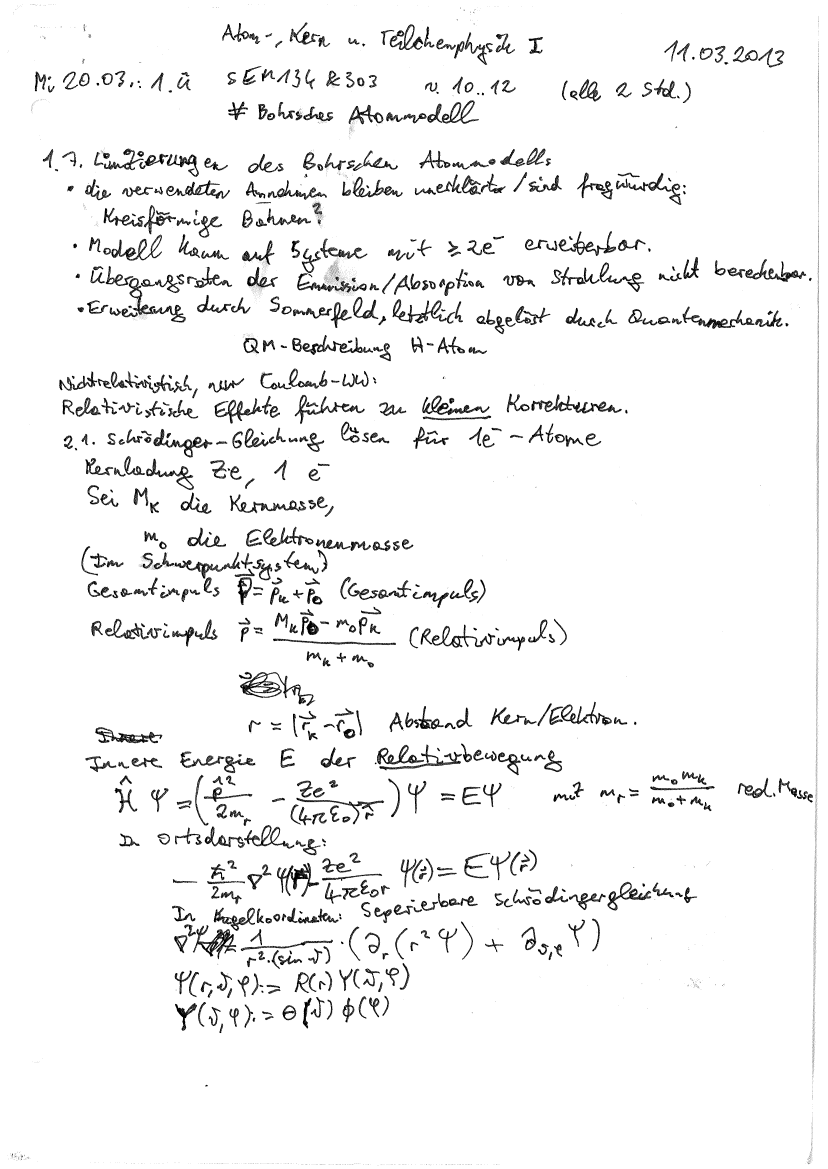 Atom-, Kern u. Teilchenphysik I
11.03.2013
Mi 20.03.: 1. Ü SEM134 & 303 v. 10..12 (alle 2 Std.)
# Bohrsches Atommodell
1.7. Limitierungen des Bohrschen Atommodells
• die verwendeten Annahmen bleiben unerklärt / sind fragwürdig:
Kreisförmige Bahnen?
• Modell kaum auf Systeme mit ≥ 2e⁻ erweiterbar.
• Übergangsraten der Emmission/Absorption von Strahlung nicht berechenbar.
• Erweiterung durch Sommerfeld, letztlich abgelöst durch Quantenmechanik.
QM-Beschreibung H-Atom
Nichtrelativistisch, nur Coulomb-WW:
Relativistische Effekte führen zu kleinen Korrekturen.
2.1. Schrödinger-Gleichung lösen für 1e⁻-Atome
Kernladung Ze, 1 e⁻
Sei M_K die Kernmasse,
m₀ die Elektronenmasse
(Im Schwerpunktsystem)
Gesamtimpuls P⃗ = p⃗_K + p⃗₀ (Gesamtimpuls)
Relativimpuls p⃗ = (M_K p⃗₀ - m₀ p⃗_K) / (m_K + m₀) (Relativimpuls)
r = |r⃗_K - r⃗₀| Abstand Kern/Elektron.
Innere Energie E der Relativbewegung
Ĥ Ψ = (p̂²/2m_r - Ze²/(4πε₀)r̂) Ψ = EΨ mit m_r = m₀m_K/(m₀+m_K) red. Masse
In Ortsdarstellung:
- ħ²/2m_r ∇² Ψ(r⃗) - Ze²/4πε₀r Ψ(r⃗) = EΨ(r⃗)
In Kugelkoordinaten: Seperierbare Schrödingergleichung
∇²Ψ = 1/(r²·(sin ϑ)) · (∂_r (r² Ψ) + ∂_ϑ,φ Ψ)
Ψ(r,ϑ,φ) := R(r) Y(ϑ,φ)
Y(ϑ,φ) := Θ(ϑ) ϕ(φ)